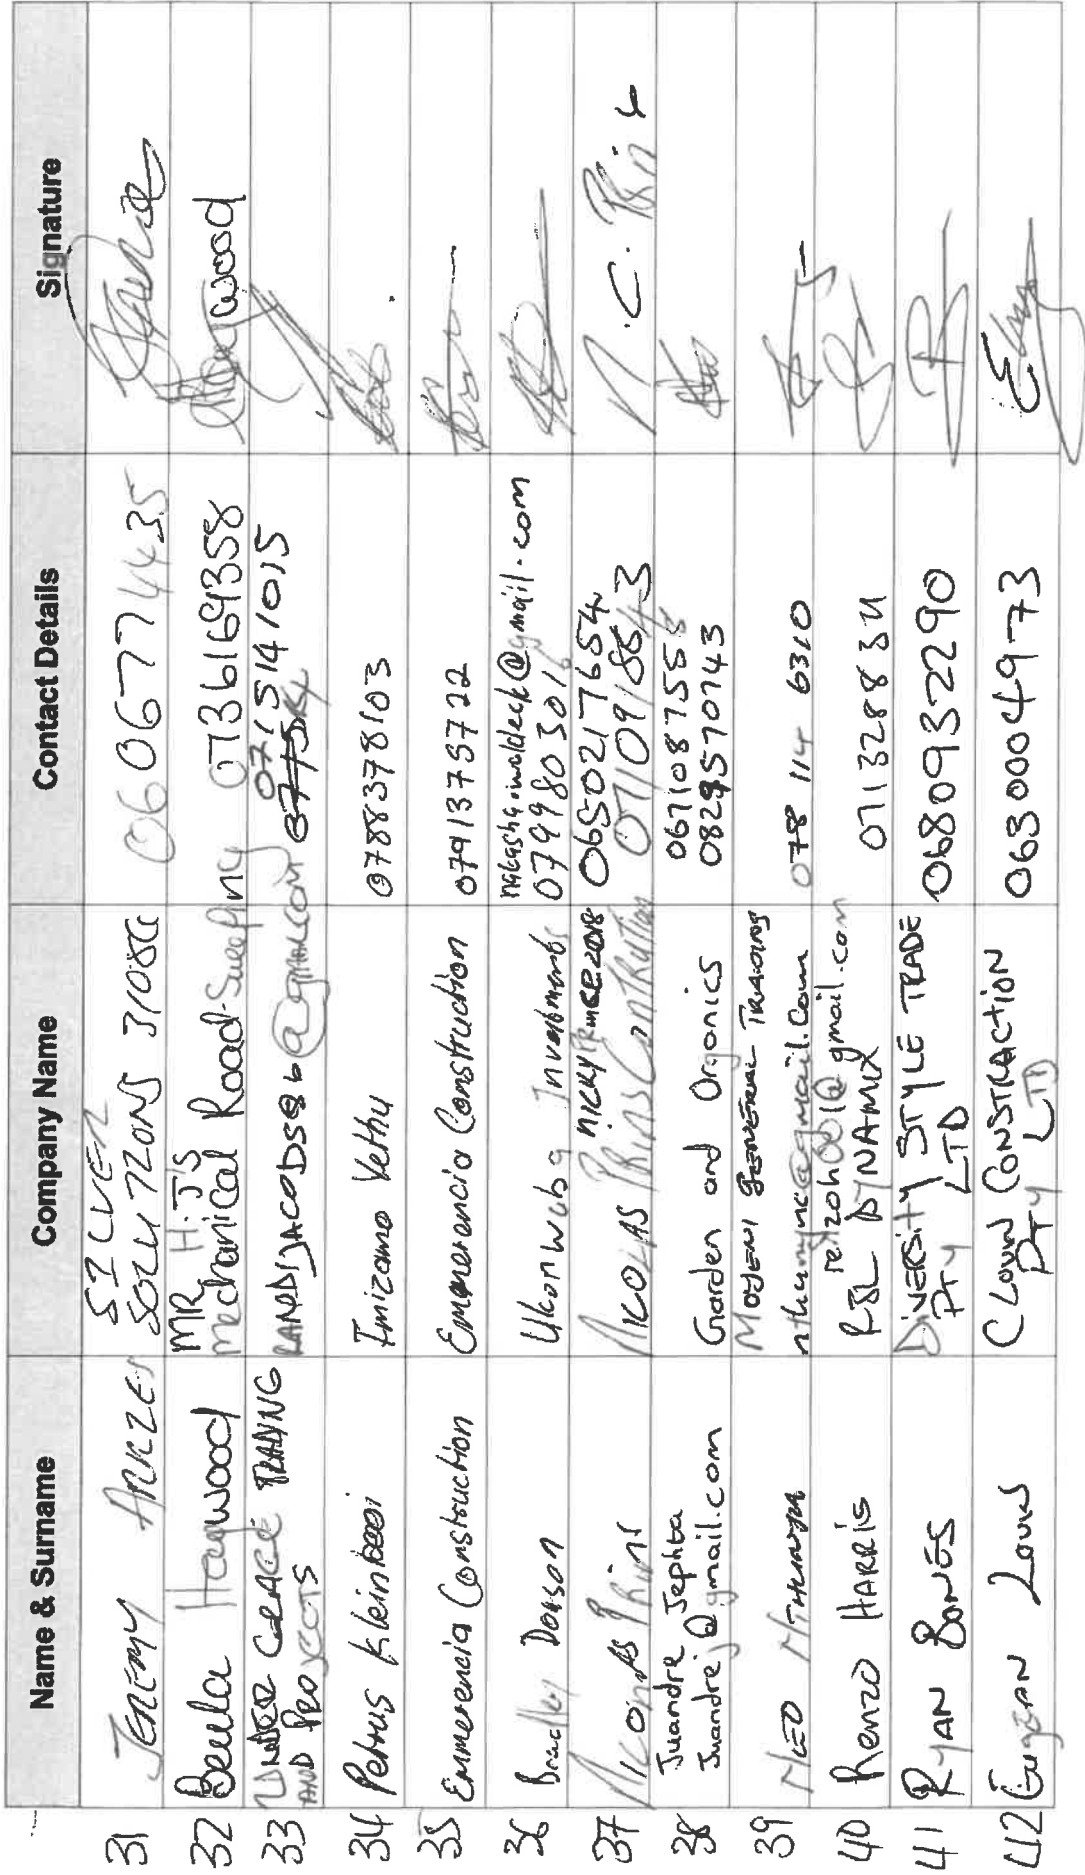 Name & Surname Company Name Contact Details Signature
31 JEREMY SILVER
SOLUTIONS 3108CC 0606774435
32 Beula Heegwood MR H.J'S
Mechanical Road-Sweeping 0736169358
33 UNDER GRACE TRADING
AND PROJECTS RANDIJACOBS86@gmail.com 0715141015
34 Petrus Kleinbooi Imizamo Yethu 0788378103
35 Emmerencia Construction Emmerencia Construction 0791375722
36 Bradley Dawson Ukonwaba Investments 0799803016
37 NICOLAS PRINS NICKYPRINCE2018 0650217654
NICOLAS PRINS 0710918543
N.C. Prins
38 Juandre Jephta
Juandrej@gmail.com Garden and Organics 0671087555
0829570743
39 GENERAL TRADING 078 114 6310
40 Renzo HARRIS renzoh001@gmail.com
DYNAMIX
41 RYAN DIVERSITY STYLE TRADE
PTY LTD 0680932290
42 LOUW C LOUW CONSTRACTION
PTY LTD 0630004973